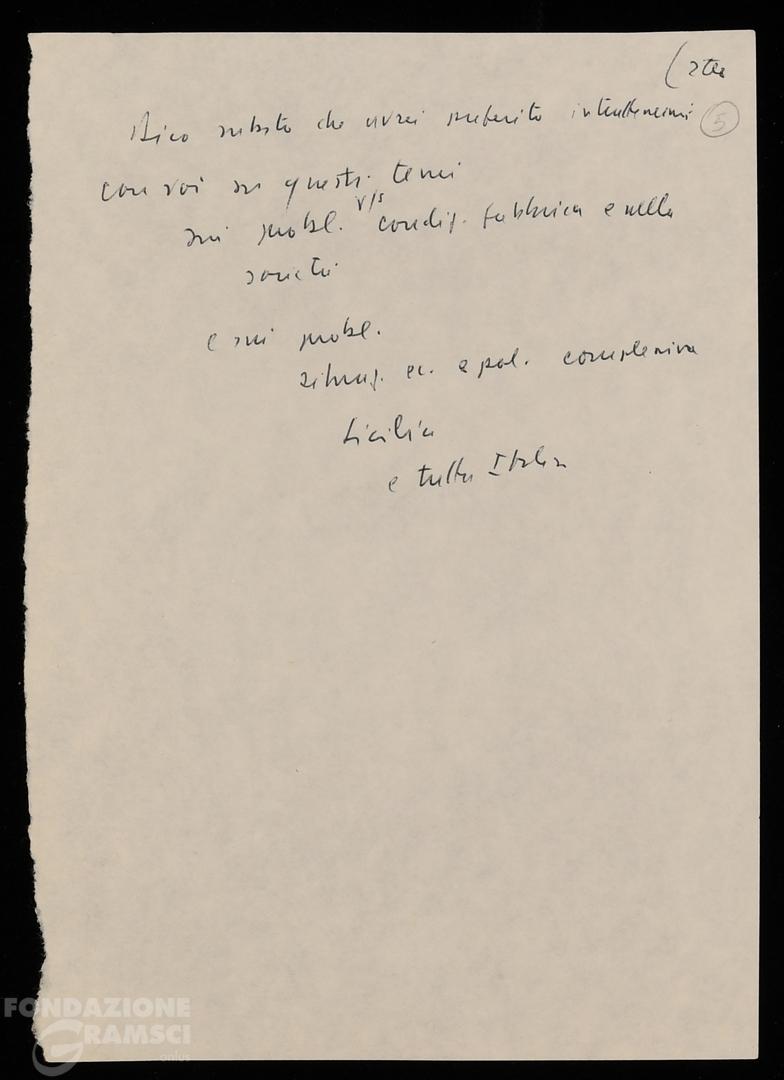 5
Dico subito che avrei preferito intrattenermi
con voi su questi temi
sui probl. v/s condiz. fabbrica e nella
società
e sui probl.
situaz. ec. e pol. complessiva
Sicilia
e tutta Italia
FONDAZIONE
GRAMSCI
onlus